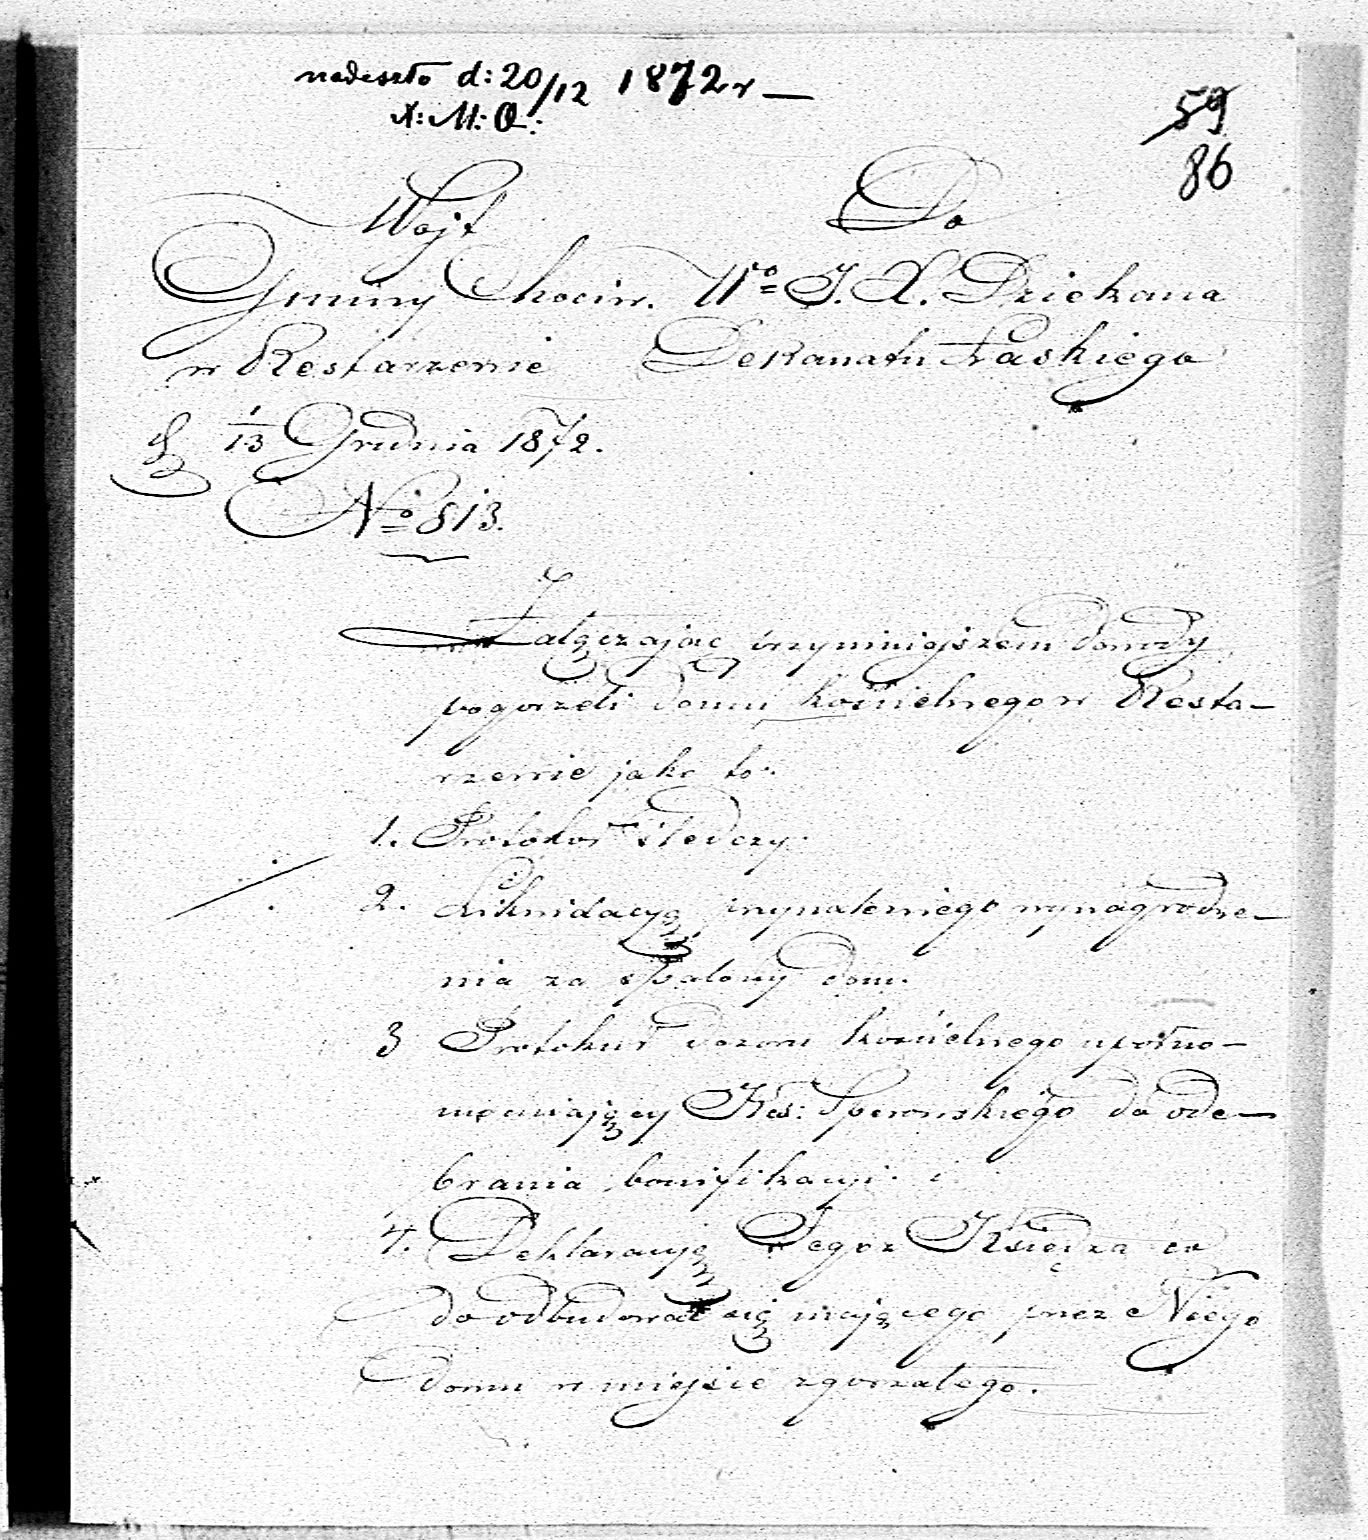 nadeszło d: 20/12 1872 r —
X: M: O:
59
86
Wójt
Gminy Chociw.
w Restarzewie
d 1/13 Grudnia 1872.
No 813.
Do
Wo J. X. Dziekana
Dekanatu Łaskiego
Załączając przyniniejszem dowody
pogorzeli domu kościelnego w Resta-
rzewie jako to:
1. Protokół śledczy.
2. Likwidacyą przynależnego wynagrodze-
nia za spalony dom.
3 Protokuł dozoru kościelnego upełno-
mocniający Kés: Sperowskiego do ode-
brania bonifikacyi. i
4. Deklaracyję Tegoż Księdza co
do odbudować się mającego przez Niego
domu w miejsce zgorzałego.